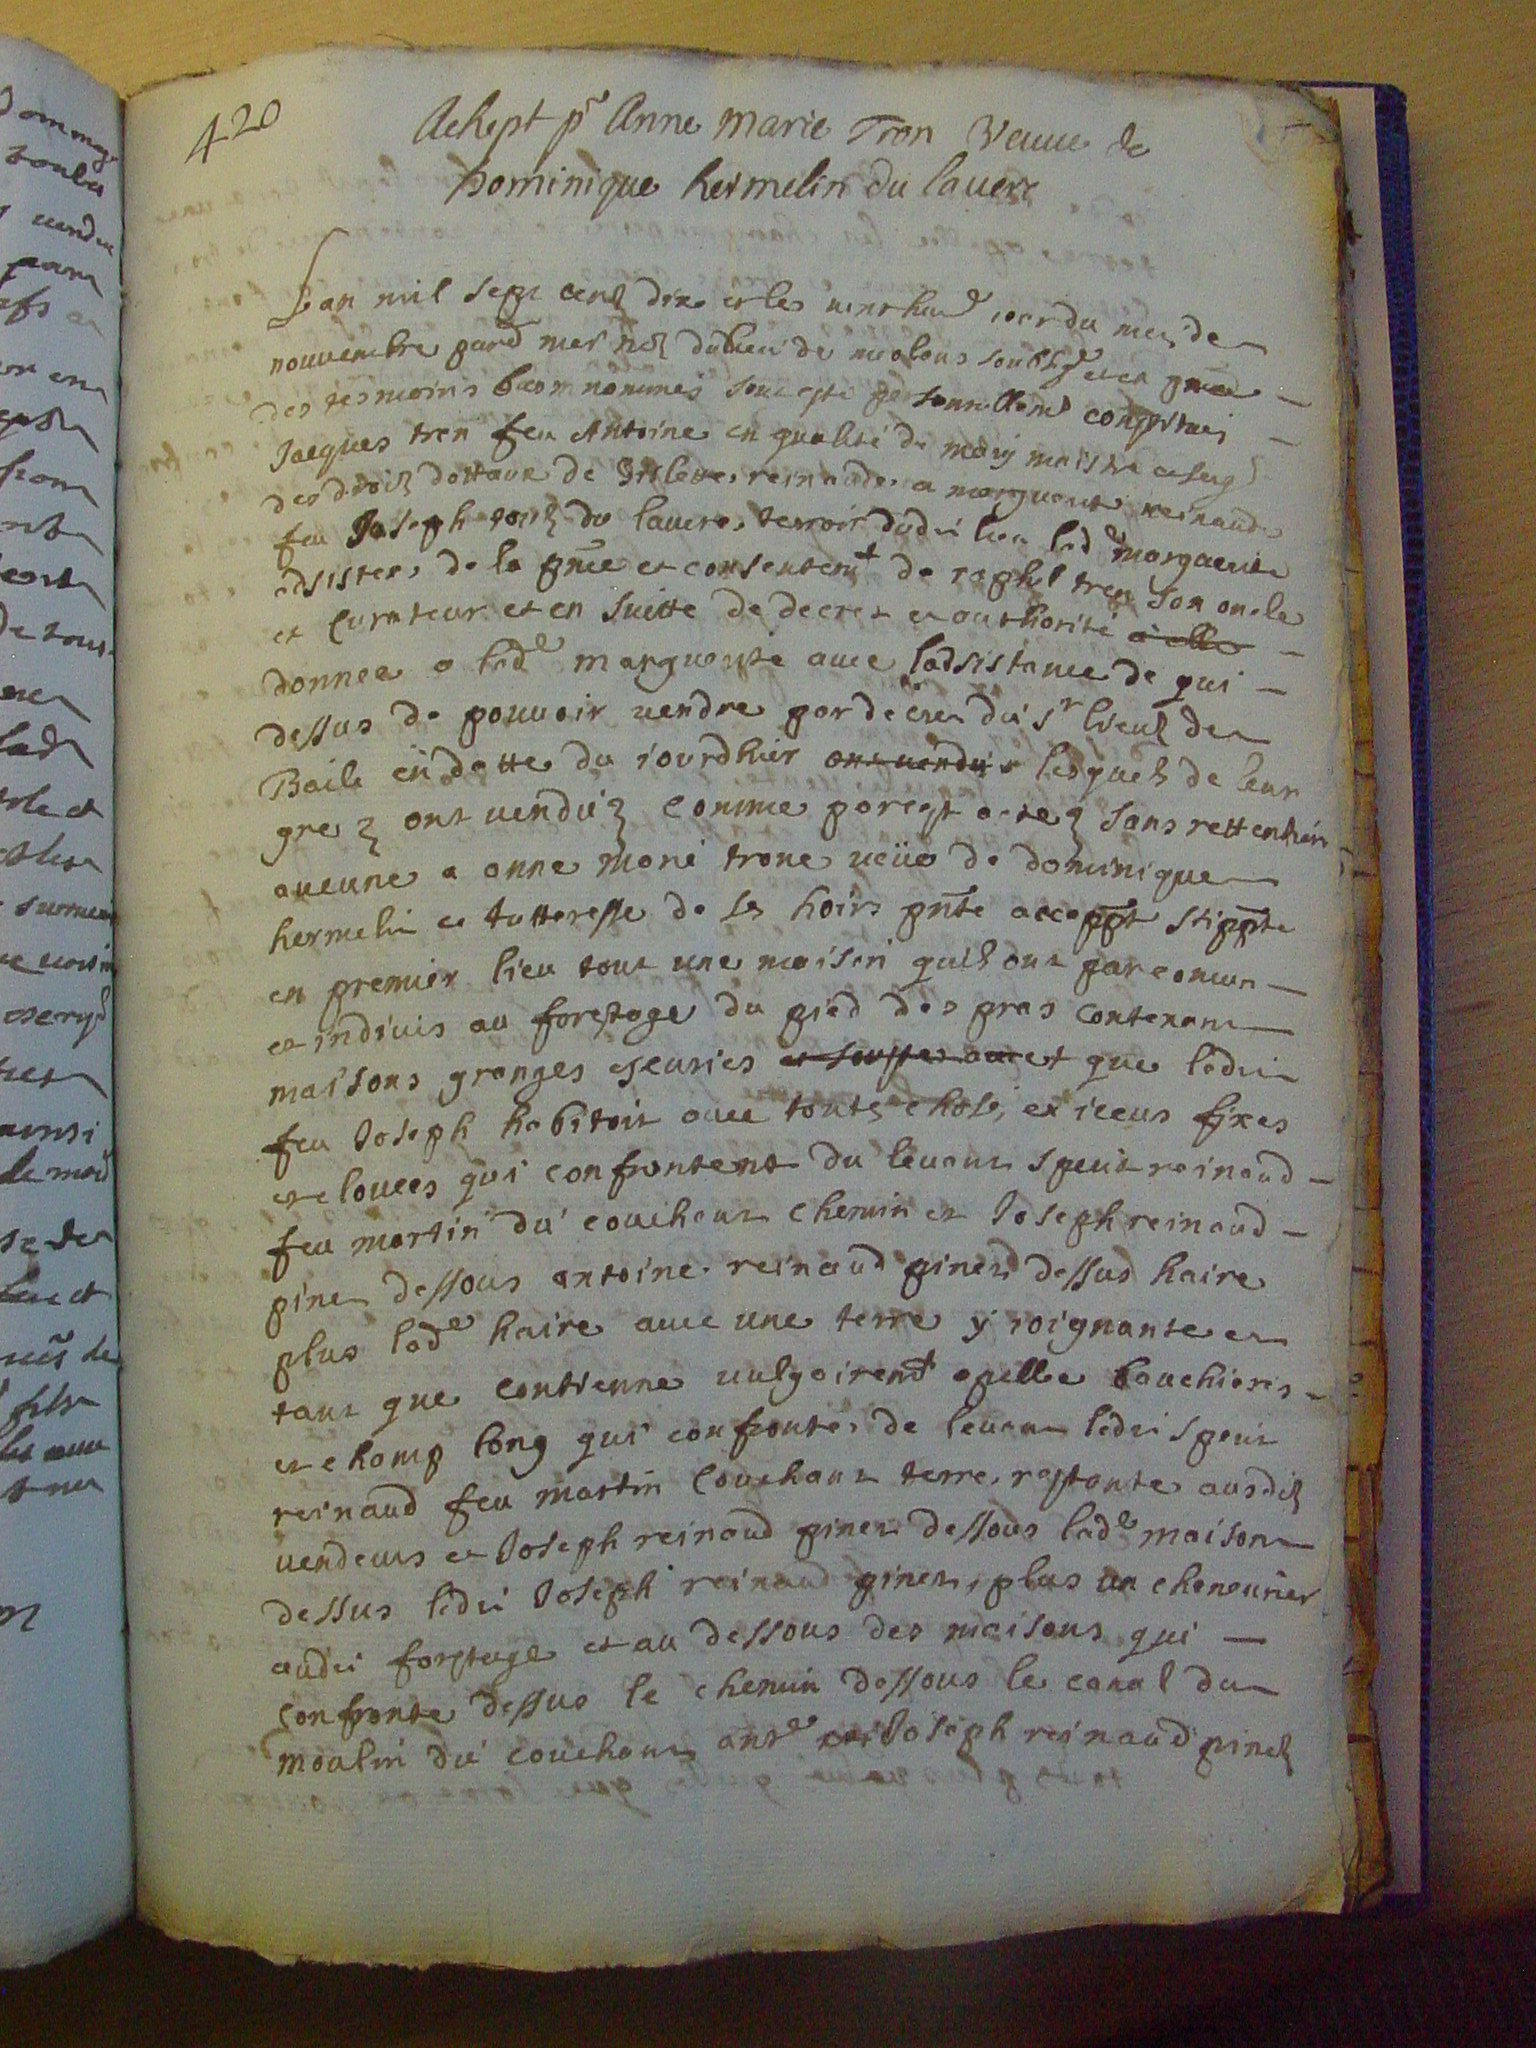 420
Achept pr Anne Marie Tron Veuue de
Dominique hermelin du lauere
Lan mil sept cens dix et le vint huit jour du mois de
nouvembre pard mes not du lieu de meolans soubsge et en pnce
des tesmoins bas nommes sont esté personnellemt constitues
Jacques tron feu Antoine en qualité de mary maistre et seigr
des droits dottaux de reinaude et marguerite reinaude
feu Joseph tous du lauere terroir dudit lieu lade marguerite
adsistee de la pnce et consentemt de raphel tron son oncle
et curateur et en suitte de decret et authorité a elle
donnee a lade marguerite auec ladsistance de qui
dessus de pouuoir uendre par decret du sr lieut de
Baile en datte du jourdhier ont uendu lesquels de leur
gre ont uendu comme par cest acte sans rettention
aucune a anne marie trone ueüe de dominique
hermelin et tutteresse de ses hoirs pnte acceppt stippte
en premier lieu tout une maison quils ont par comun
et indiuis au forestage du pied des pras contenant
maisons granges escuries et que ledit
feu Joseph habitoit auec toutes choses en icelles fixes
et clouees qui confrontent du leuant sperit reinaud
feu martin du couchant chemin et Joseph reinaud
pinet dessous antoine reinaud pinet dessus haire
plus lade haire auec une terre y joignante en
tant que contienne uulgairemt apellee bouchieres
et champ long qui confronte de leuant ledit sperit
reinaud feu martin couchant terre restante ausdits
uendeurs et Joseph reinaud pinet dessous lade maison
dessus ledit Joseph reinaud pinet, plus un cheneurier
audit forestage et au dessous des maisons qui
confronte dessus le chemin dessous le canal du
moulin du couchant Joseph reinaud pinet